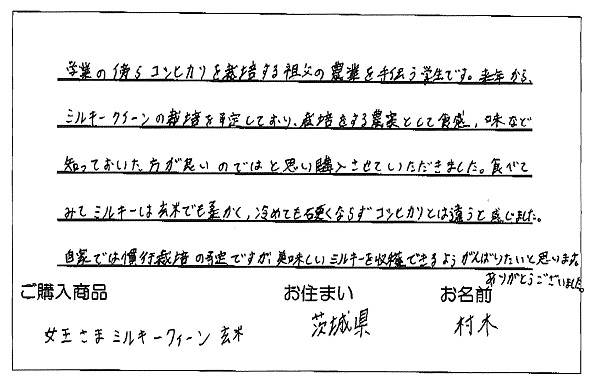 学業の傍らコシヒカリを栽培する祖父の農業を手伝う学生です。来年から、
ミルキークイーンの栽培を予定しており、栽培をする農家として食感、味など
知っておいた方が良いのではと思い購入させていただきました。食べて
みてミルキーは玄米でも柔かく、冷めても硬くならずコシヒカリとは違うと感じました。
自家では慣行栽培の予定ですが、美味しいミルキーを収穫できるようがんばりたいと思います。
ありがとうございました。
ご購入商品 お住まい お名前
女王さまミルキークィーン 玄米 茨城県 村木